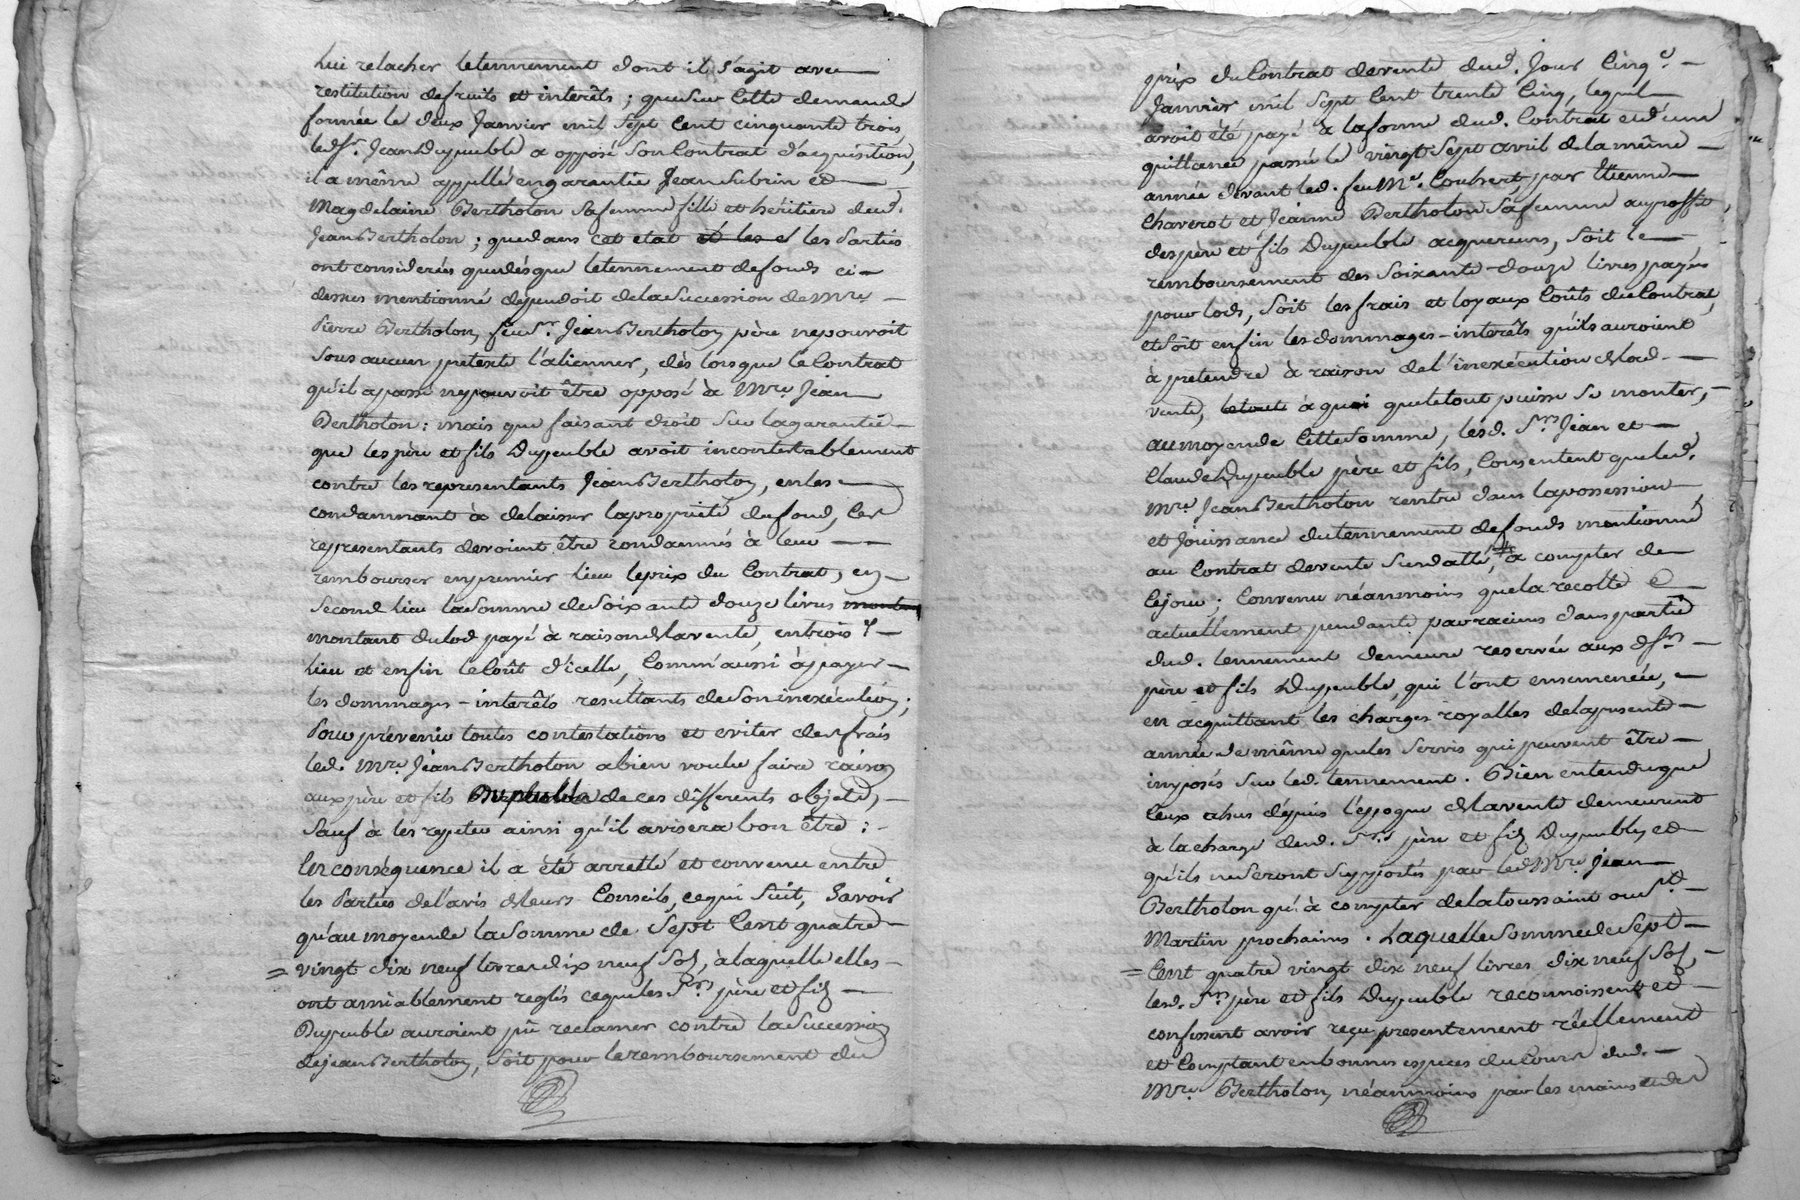 lui relacher letennement dont il s'agit avec
restitution defruits et interêts ; quesur Cette demande
formée le deux Janvier mil Sept Cent cinquante trois
led. Sr. Jean Dupeuble a opposé Son Contrat d'acquisition,
il a même appellé engarantie Jean Subrin et
Magdelaine Bertholon Safemme fille et héritiere dud.
Jean Bertholon ; quedans cet etat et les les Parties
ont considerées quedésque letennement defonds ci-
dessus mentionné dependoit delaSuccession de Mre
Pierre Bertholon, feu Sr. Jean Bertholon père nepouvoit
Sous aucun pretexte l'alienner, dès lorsque le Contrat
qu'il apassé nepouvoit être opposé à Mre. Jean
Bertholon : mais que faisant droit Sur lagarantie
que lespère et fils Dupeuble avoit incontestablement
contre les representants Jean Bertholon, enles
condamnant à delaisser lapropriété dufond, Ces
representants devoient être condamnés à leur
rembourser enpremier lieu leprix du Contrat, en
Second lieu laSomme deSoixante douze livres
montant dulod payé à raison de lavente, entrois e
lieu et enfin leCoût d'icelle, Comm'aussi à payer
les dommages-interêts resultants deSoninexécution ;
Pour prévenir toutes contestations et eviter desfrais
led. Mre. Jean Bertholon abien voulu faire raison
auxpère et fils Dupeuble de ces differents objets,
Sauf à les repeter ainsi qu'il avisera bon être :
En conséquence il a été arretté et convenu entre
les Parties del'avis de leurs Conseils, cequi Suit, Savoir
qu'au moyende laSomme de Sept Cent quatre
= vingt dix neuf livres dix neuf Sols, àlaquelle elles
ont amiablement reglés cequeles Srs. père et fils
Dupeuble auroient pû reclamer contre laSuccession
dejean Bertholon, Soit pour leremboursement du
prix duContrat devente dud. Jour Cinq e.
Janvier mil Sept Cent trente Cinq, lequel
avoit été payé à laforme dud. Contrat et d'une
quittance passée le vingt Sept avril delamême
année devant led. feu Me. Coubert, par Etienne
Chaverot et Jeanne Bertholon Safemme auproffit
despère et fils Dupeuble acquereurs, Soit le
remboursement des Soixante-douze livres payées
pour lods, Soit lesfrais et loyaux Coûts duContrat,
etSoit enfin lesdommages-interêts qu'ils auroient
à pretendre à raison del'inexécution de lad.
vente, à quoi queletout puisse Se monter,
aumoyende CetteSomme, lesd. Srs. Jean et
Claude Dupeuble père et fils, Consentent queled.
Mre Jean Bertholon rentre dans lapossession
et Jouissance dutennement defonds mentionné
au Contrat devente Susdatté, # à compter de
Cejour ; Convenu néanmoins quela recolte
actuellement pendante parracines dans partie
dud. tennement demeure reservée aux d. Srs.
père et fils Dupeuble, qui l'ont ensemencée,
en acquittant les charges royalles delapresente
année demême queles Servis quipeuvent être
imposés Sur led. tennement. Bien entenduque
Ceux échus depuis l'epoque de lavente demeurent
à lacharge desd. Srs. père et fils Dupeuble, et
qu'ils neSeront Supportés par led Mre. Jean
Bertholon qu'à compter delatoussaint ou St.
Martin prochains. LaquelleSomme deSept
= Cent quatre vingt dix neuf livres dix neuf Sols,
lesd. Srs. père et fils Dupeuble reconnoissent et
confessent avoir reçu presentement réellement
et Comptant enbonnes especes duCours dud.
Mre. Bertholon, néanmoins par les mains